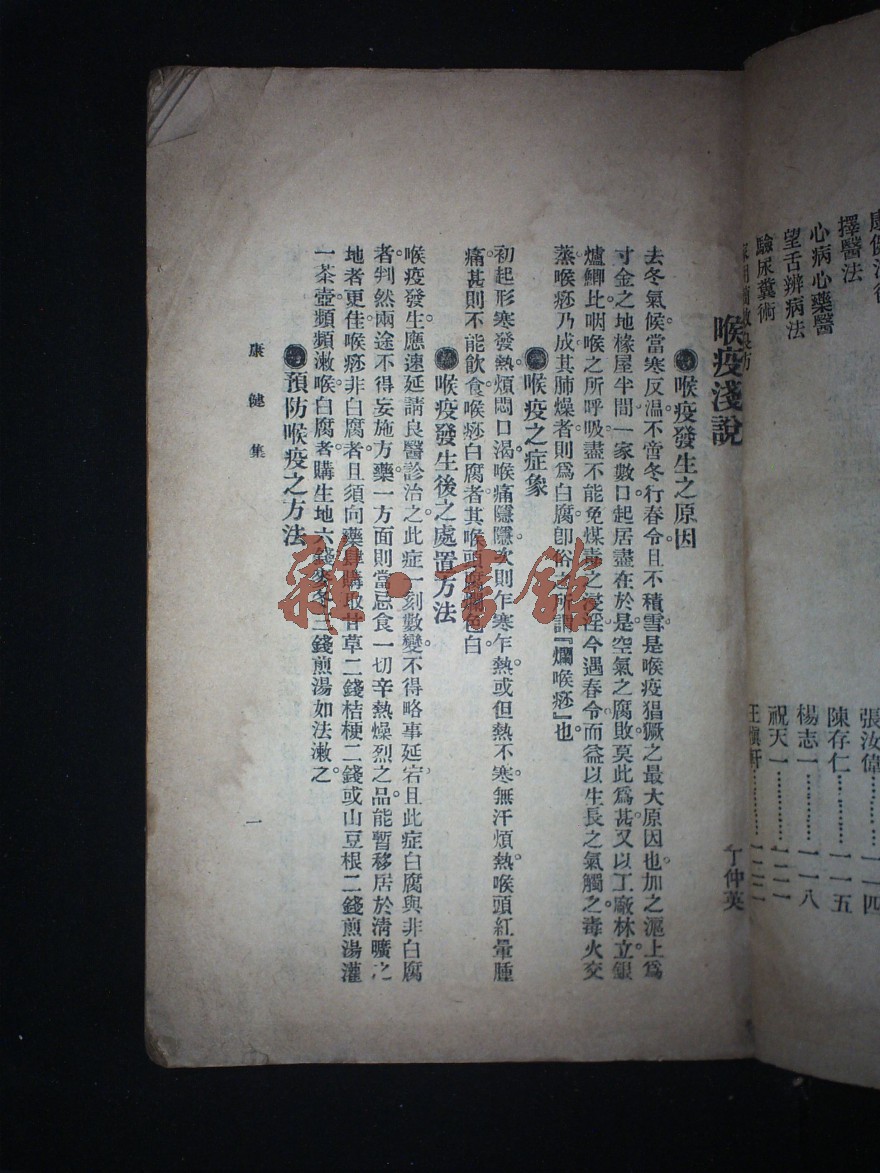 擇醫法
陳存仁⋯⋯⋯一一五
心病心藥醫
楊志一⋯⋯⋯一一八
望舌辨病法
祝天一⋯⋯⋯一二一
驗尿糞術
喉疫淺說
丁仲英
喉疫發生之原因
去冬氣候當寒反溫不啻冬行春令且不積雪是喉疫猖獗之最大原因也加之滬上爲
寸金之地椽屋半間一家數口起居盡在於是空氣之腐敗莫此爲甚又以工廠林立銀
爐鯽比咽喉之所呼吸盡不能免煤毒之侵淫今遇春令而益以生長之氣觸之毒火交
蒸喉痧乃成其肺燥者則爲白腐卽俗所謂『爛喉痧』也
喉疫之症象
初起形寒發熱煩悶口渴喉痛隱隱次則乍寒乍熱或但熱不寒無汗煩熱喉頭紅暈腫
痛甚則不能飲食喉痧白腐者其喉頭腐爛色白
喉疫發生後之處置方法
喉疫發生應速延請良醫診治之此症一刻數變不得略事延宕且此症白腐與非白腐
者判然兩途不得妄施方藥一方面則當忌食一切辛熱燥烈之品能暫移居於清曠之
地者更佳喉痧非白腐者且須向藥肆購取甘草二錢桔梗二錢或山豆根二錢煎湯灌
一茶壺頻頻漱喉白腐者購生地六錢麥冬三錢煎湯如法漱之
預防喉疫之方法
康健集
一
雜·書館